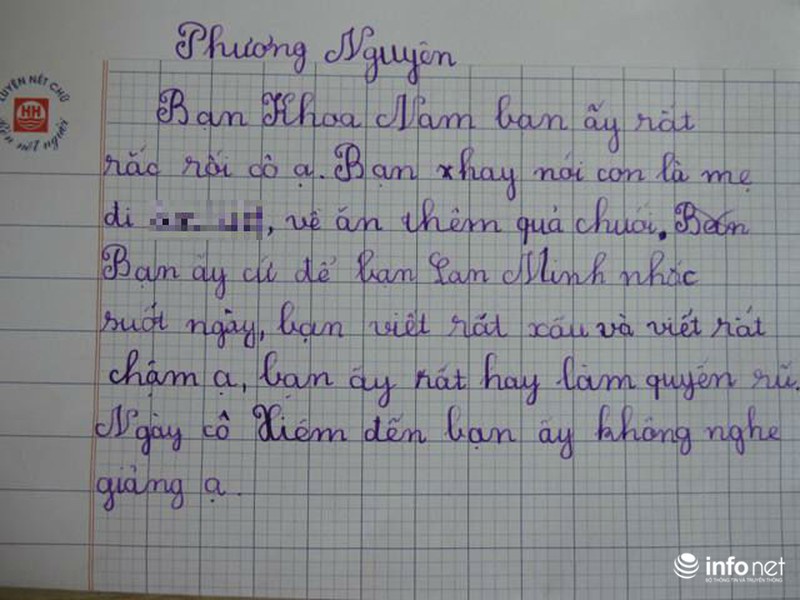 Phương Nguyên
LUYỆN NÉT CHỮ
HH
Rèn nết người
Bạn Khoa Nam bạn ấy rất
rắc rối cô ạ. Bạn hay nói con là mẹ
đi , về ăn thêm quả chuối. Bạn
Bạn ấy cứ để bạn Lan Minh nhắc
suốt ngày, bạn viết rất xấu và viết rất
chậm ạ, bạn ấy rất hay làm quyển rũ.
Ngày cô Xiêm đến bạn ấy không nghe
giảng ạ.
infonet
BỘ THÔNG TIN VÀ TRUYỀN THÔNG